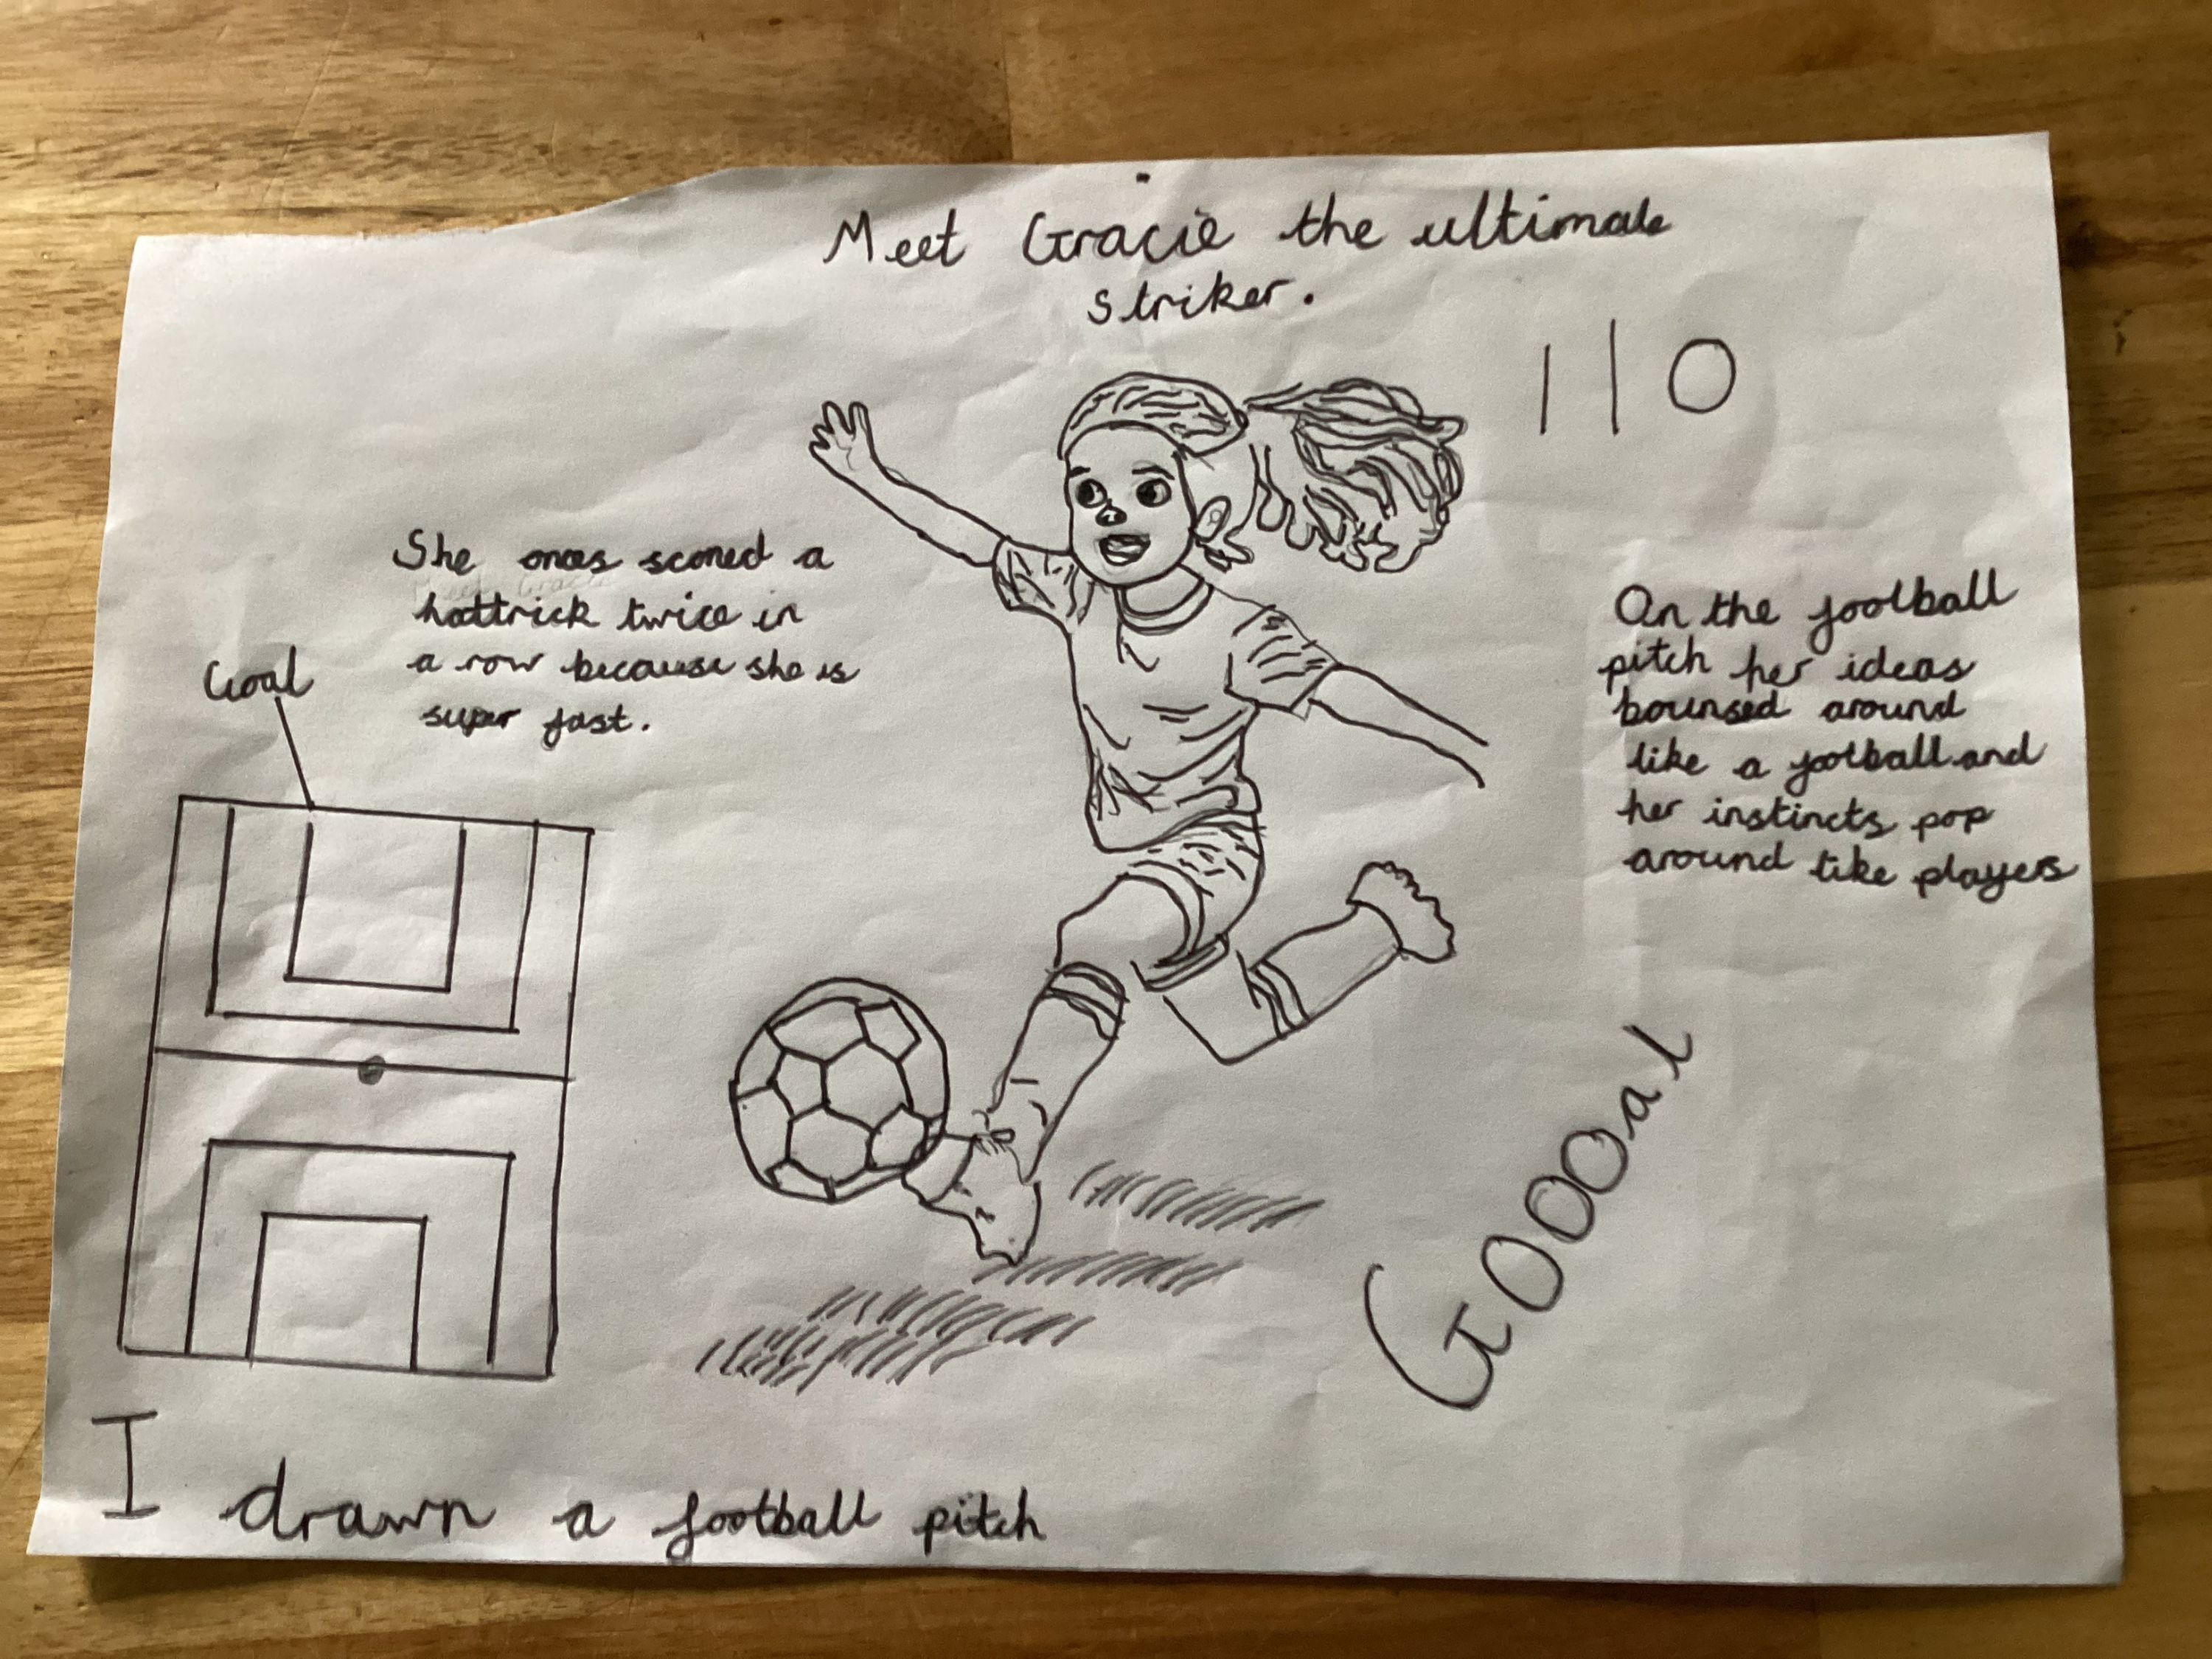 Meet Gracie the ultimate
striker.
1 | 0
She onces scored a
hattrick twice in
a row because she is
super fast.
Goal
On the football
pitch her ideas
bounsed around
like a football and
her instincts pop
around like players
GOOOal
I drawn a football pitch